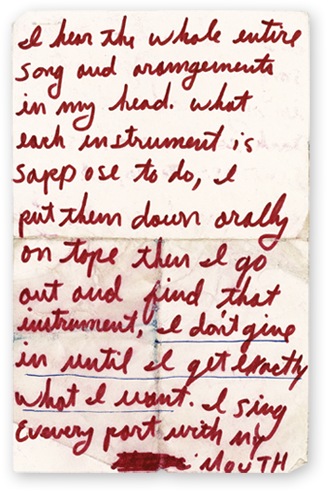 I hear the whole entire
song and arangements
in my head. what
each instrument is
sappose to do, I
put them down orally
on tape then I go
out and find that
instrument, I don't give
in until I get exactly
what I want. I sing
Eveery part with my
MOUTH